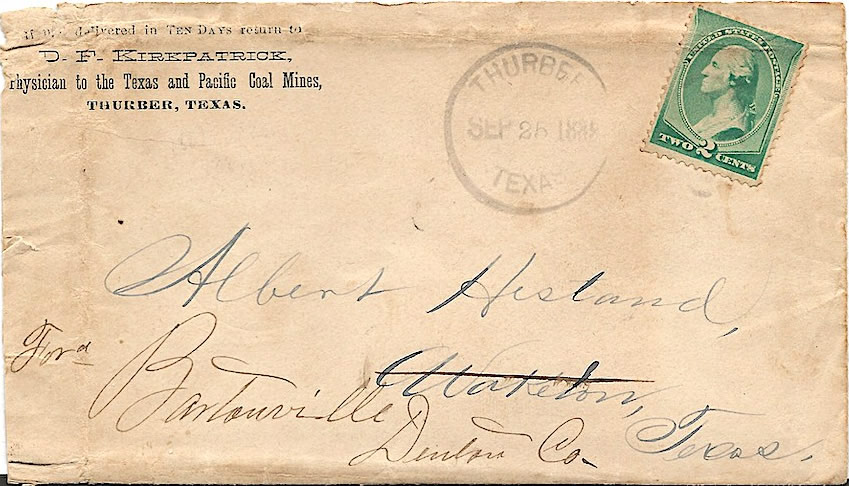 If not delivered in TEN DAYS return to
D. F. KIRKPATRICK,
Physician to the Texas and Pacific Coal Mines,
THURBER, TEXAS.
THURBER
SEP 26 188
TEXAS
UNITED STATES POSTAGE
TWO 2 CENTS
Albert Hesland,
Ford
Waketon,
Bartonville
Denton Co.
Texas.